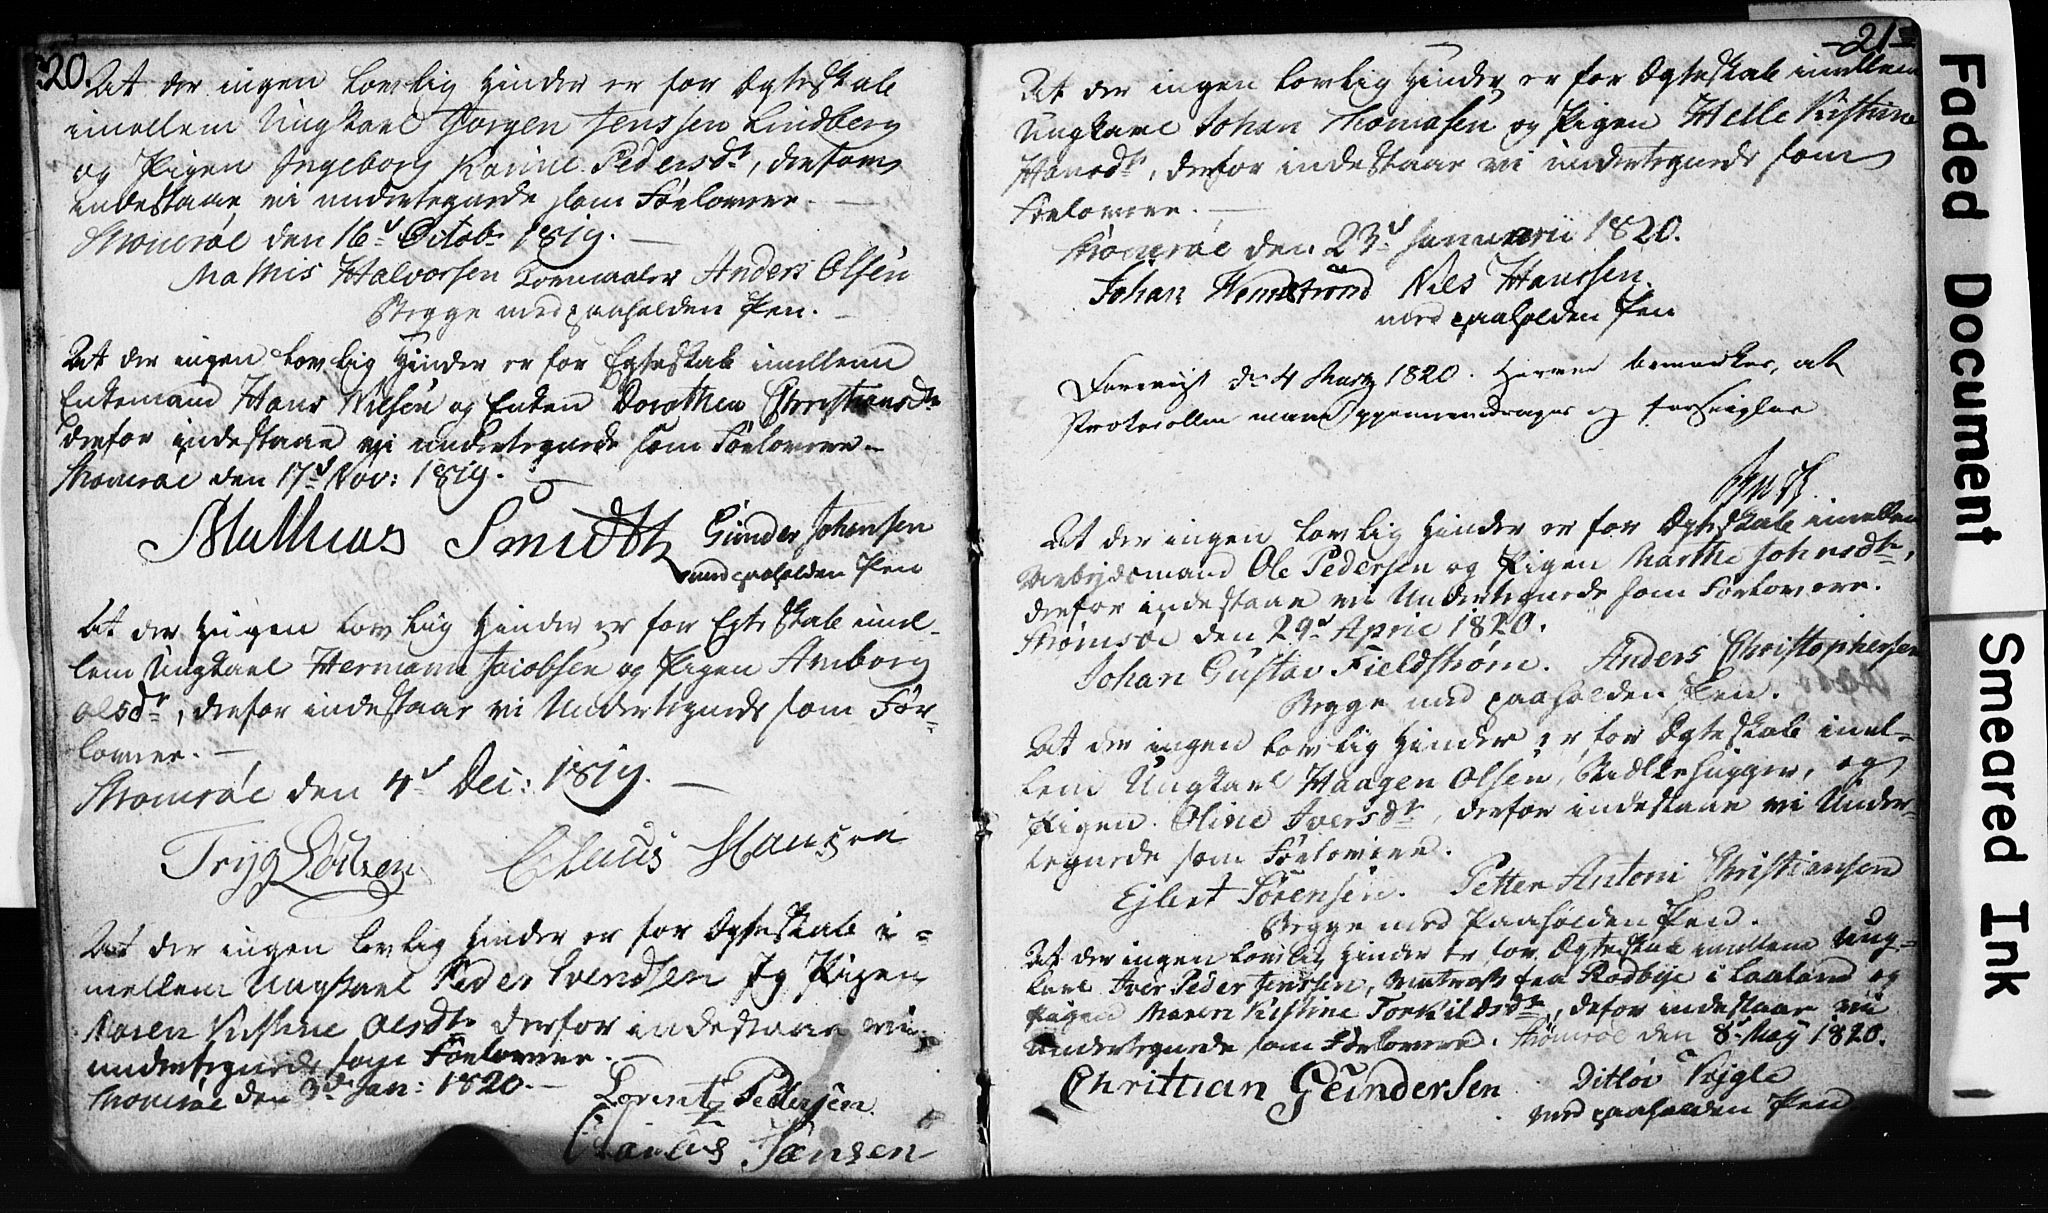 20.
At der ingen lovlig Hinder er for Ægteskab
imellem Ungkarl Jørgen Jenssen Lindberg
og Pigen Ingeborg Karine Pedersdr, derfor
indestaae vi undertegnede som Forlovere.
Strømsøe den 16d Octobr 1819.
Mathis Halvorsen Kornmaaler Anders Olsen
Begge med paaholden Pen.
At der ingen lovlig Hinder er for Egteskab imellem
Enkemand Hans Nilsen og Enken Dorothea Christensdr
derfor indestaae vi undertegnede som Forlovere.
Strømsøe den 17d Nov: 1819.
Mathias Smidth Gunder Johansen
med paaholden Pen
At der ingen lovlig Hinder er for Egteskab imel-
lem Ungkarl Hermann Jacobsen og Pigen Anborg
Olsdr, derfor indestaar vi Undertegnede som For-
lovere.
Strømsøe den 4d Dec: 1819.
Tryg Claus Hansen
At der ingen lovlig Hinder er for Ægteskab i-
mellem Ungkarl Peder Svendsen og Pigen
Karen Kistine Olsdr derfor indestaae vi
undertegnede som Forlovere.
Strømsøe den 3d Jan: 1820.
Lorentz Pettersen
Jensen
-21-
At der ingen lovlig Hinder er for Ægteskab imellem
Ungkarl Johan Thomasen og Pigen Helle Kistine
Hansdr, derfor indestaar vi undertegnede som
Forlovere.
Strømsøe den 23d Januarii 1820.
Johan Nils Hanssen.
med paaholden Pen
Foreviist d. 4 Martz 1820. Herved bemærkes, at
Protocollen maae gjennemdrages og forsegles
At der ingen lovlig Hinder er for Ægteskab imellem
Arbejdsmand Ole Pedersen og Pigen Marthe Johnsdr,
derfor indestaae vi Undertegnede som Forlovere.
Strømsøe den 29d April 1820.
Johan Gustav Fieldstrøm. Anders Christophersen
Begge med paaholden Pen.
At der ingen lovlig Hinder er for Ægteskab imel-
lem Ungkarl Haagen Olsen, Bielkehugger, og
Pigen Oline Iversdr, derfor indestaae vi Under-
tegnede som Forlovere.
Ejlert Sørensen. Petter Antoni Christiansen
Begge med Paaholden Pen.
At der ingen lovlig Hinder er for Ægteskab imellem Ung-
karl Iver Peder Jenssen, Matros fra Rødbye i Laaland og
Pigen Maren Kistine Torkildsdr, derfor indestaar vi
Undertegnede som Forlovere. Strømsøe den 8d May 1820.
Christian Geundersen Ditlov
med paaholden Pen.
Faded Document
Smeared Ink